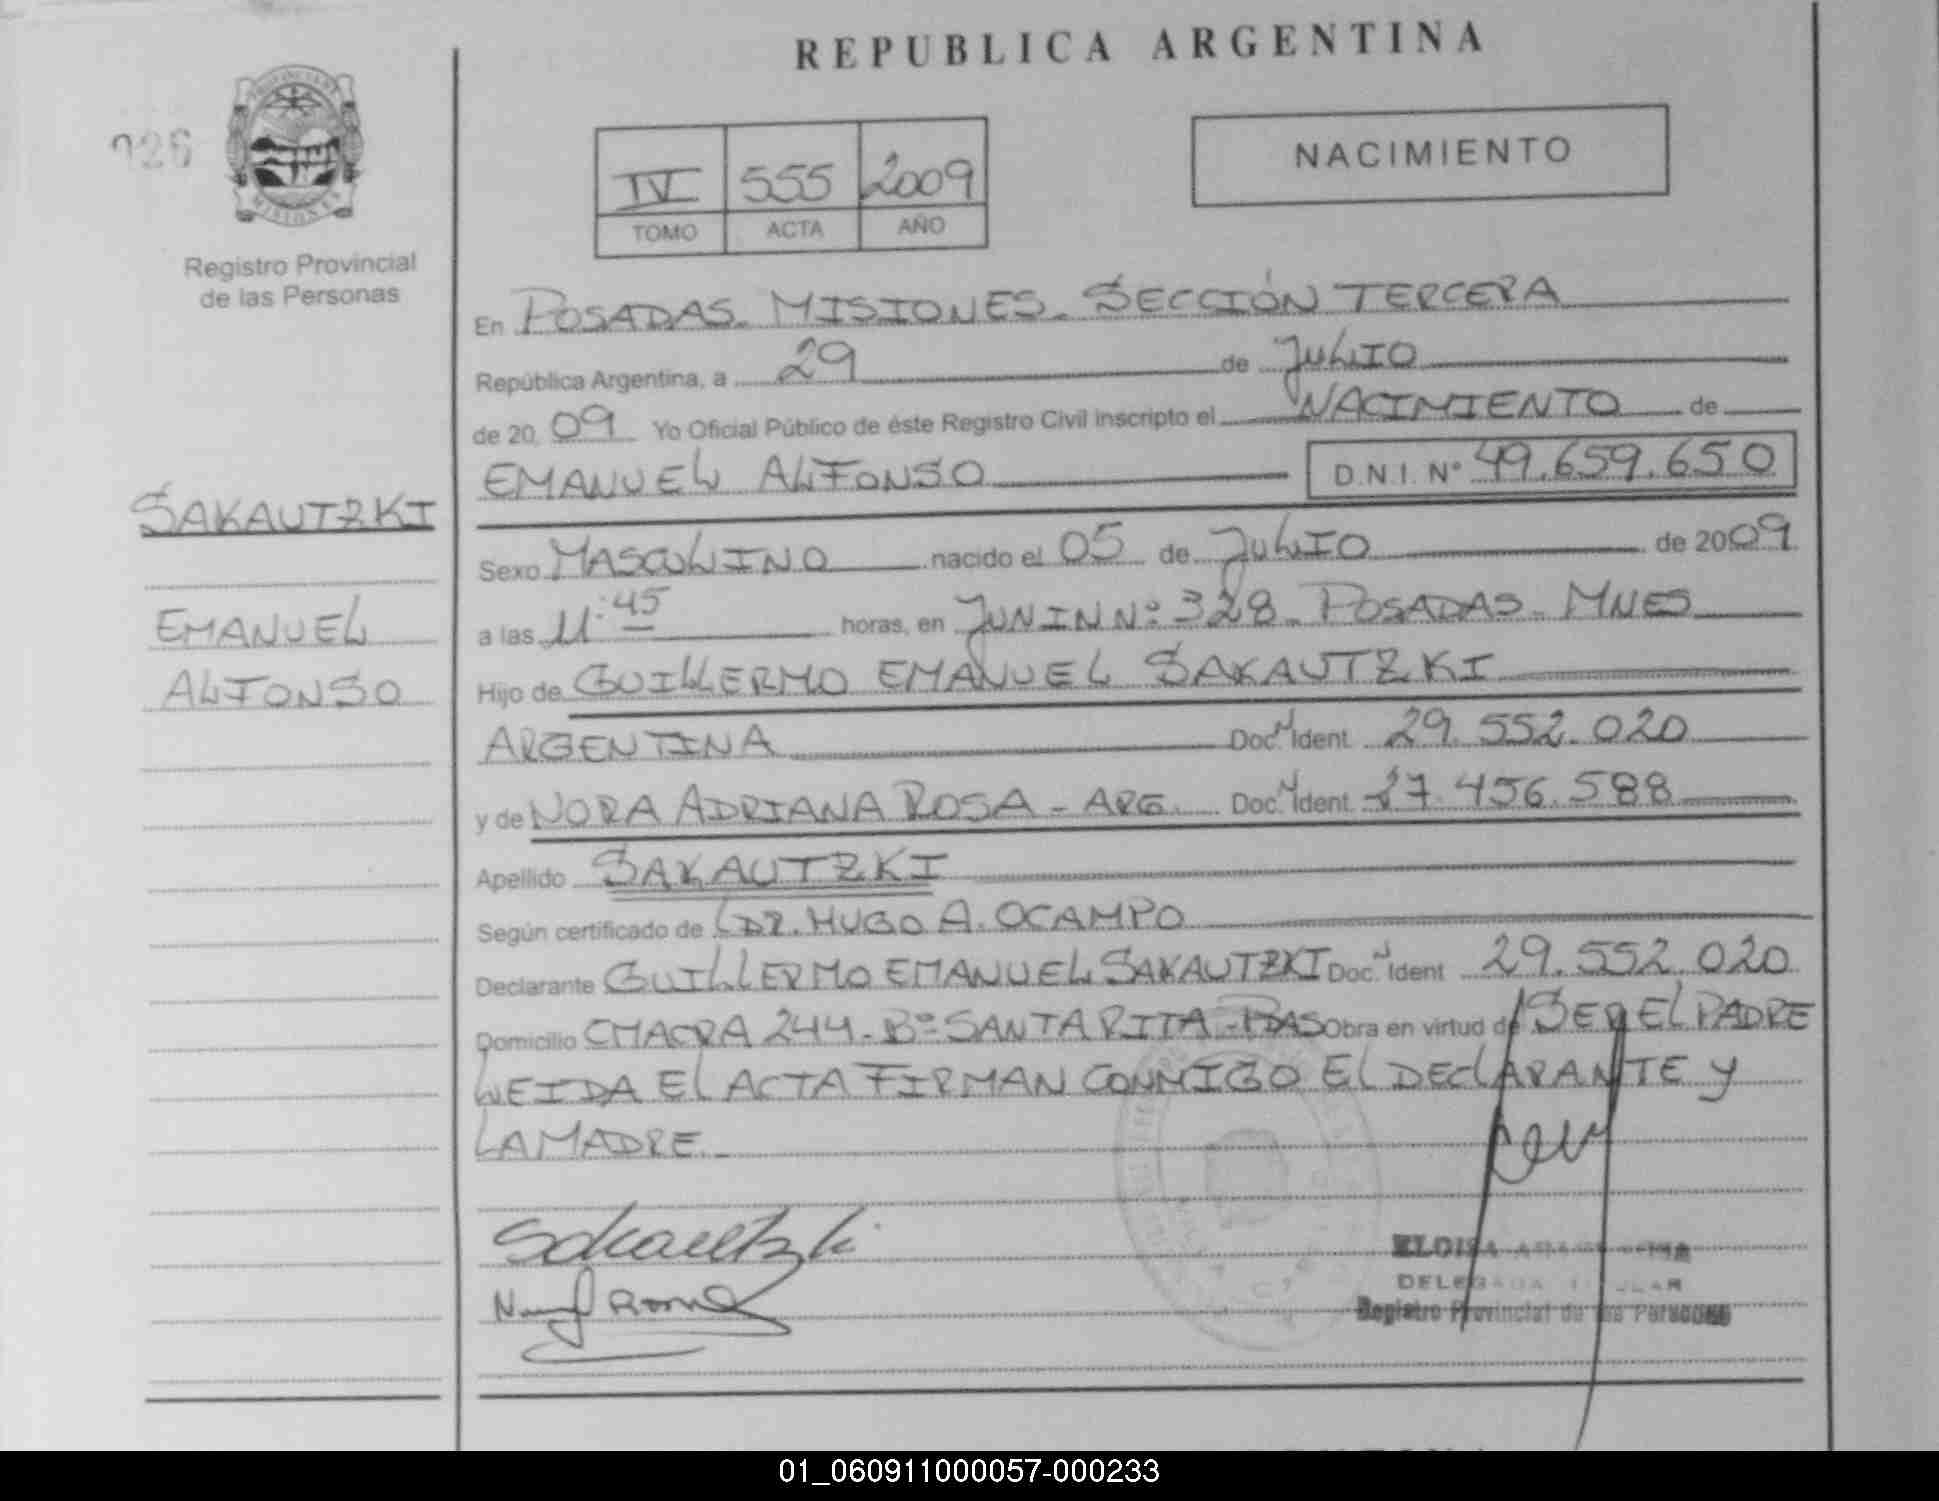 REPUBLICA ARGENTINA
026
PROVINCIA DE MISIONES
Registro Provincial
de las Personas
IV 555 2009
TOMO ACTA AÑO
NACIMIENTO
En POSADAS. MISIONES. SECCIÓN TERCERA
República Argentina, a 29 de JULIO
de 2009 Yo Oficial Público de éste Registro Civil inscripto el NACIMIENTO de
EMANUEL ALFONSO D.N.I. Nº 49.659.650
SAKAUTZKI
EMANUEL
ALFONSO
Sexo MASCULINO nacido el 05 de JULIO de 2009
a las 11:45 horas, en JUNIN Nº 328. POSADAS. MNES
Hijo de GUILLERMO EMANUEL SAKAUTZKI
ARGENTINA Doc. N Ident. 29.552.020
y de NORA ADRIANA ROSA - ARG. Doc. N Ident. 27.456.588
Apellido SAKAUTZKI
Según certificado de (DR. HUGO A. OCAMPO
Declarante GUILLERMO EMANUEL SAKAUTZKI Doc. N Ident. 29.552.020
Domicilio CHACRA 244 - Bº SANTA RITA - PDAS Obra en virtud de SER EL PADRE
LEIDA EL ACTA FIRMAN CONMIGO EL DECLARANTE Y
LA MADRE.
Sakautzki
ELOISA
DELEGADA TITULAR
Registro Provincial de las Personas
01_060911000057-000233